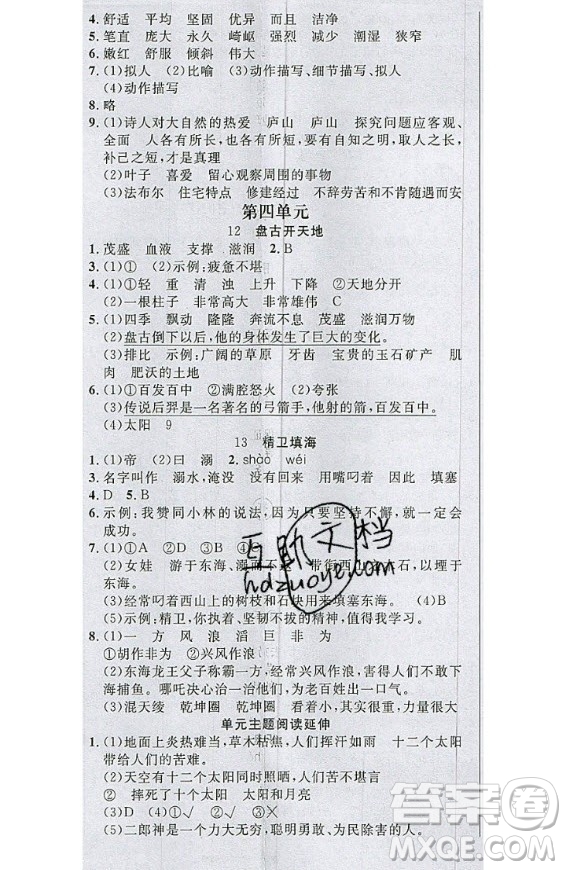 4.舒适 平均 坚固 优异 而且 洁净
5.笔直 庞大 永久 崎岖 强烈 减少 潮湿 狭窄
6.嫩红 舒服 倾斜 伟大
7.(1)拟人 (2)比喻 (3)动作描写、细节描写、拟人
(4)动作描写
8.略
9.(1)诗人对大自然的热爱 庐山 庐山 探究问题应客观、
全面 人各有所长,也各有所短,要有自知之明,取人之长,
补己之短,才是真理
(2)叶子 喜爱 留心观察周围的事物
(3)法布尔 住宅特点 修建经过 不辞劳苦和不肯随遇而安
第四单元
12 盘古开天地
1.茂盛 血液 支撑 滋润 2.B
3.(1)① (2)示例:疲惫不堪
4.(1)①轻 重 清 浊 上升 下降 ②天地分开
(2)一根柱子 非常高大 非常雄伟 C
5.(1)四季 飘动 隆隆 奔流不息 茂盛 滋润万物
(2)盘古倒下以后,他的身体发生了巨大的变化。
(3)排比 示例:广阔的草原 牙齿 宝贵的玉石矿产 肌
肉 肥沃的土地
6.(1)①百发百中 ②满腔怒火 (2)夸张
(3)传说后羿是一名著名的弓箭手,他射的箭,百发百中。
(4)太阳 9
13 精卫填海
1.(1)帝 (2)曰 溺 2.shào wéi
3.名字叫作 溺水,淹没 没有回来 用嘴叼着 因此 填塞
4.D 5.B
6.示例:我赞同小林的说法,因为只要坚持不懈,就一定会
成功。
7.(1)①A ②D ③B ④C
(2)女娃 游于东海,溺而不返 常衔西山之木石,以堙于
东海。
(3)经常叼着西山上的树枝和石块用来填塞东海。 (4)B
(5)示例:精卫,你真是一只执着、有顽强奋斗精神的神鸟。
8.(1)一 方 风 浪 滔 巨 非 为
①胡作非为 ②兴风作浪
(2)东海龙王父子称霸一方,经常兴风作浪,害得人们不敢下
海捕鱼。 哪吒决心治一治他们,为老百姓出一口气。
(3)混天绫 乾坤圈 混天绫虽小,但其实很大,乾坤圈威力大。
单元主题阅读延伸
1.(1)地面上炎热难当,草木枯焦,人们挥汗如雨 十二个太阳
带给人们的苦难。
(2)①天空有十二个太阳同时照晒,人们处在苦难之中
② 摔死了十个太阳 太阳和月亮
(3)D (4)①√ ②√ ③×
(5)二郎神是一个力大无穷,聪明勇敢、为民除害的人。
互助文档
hdzuoye.com
答案圈
MXQE.COM